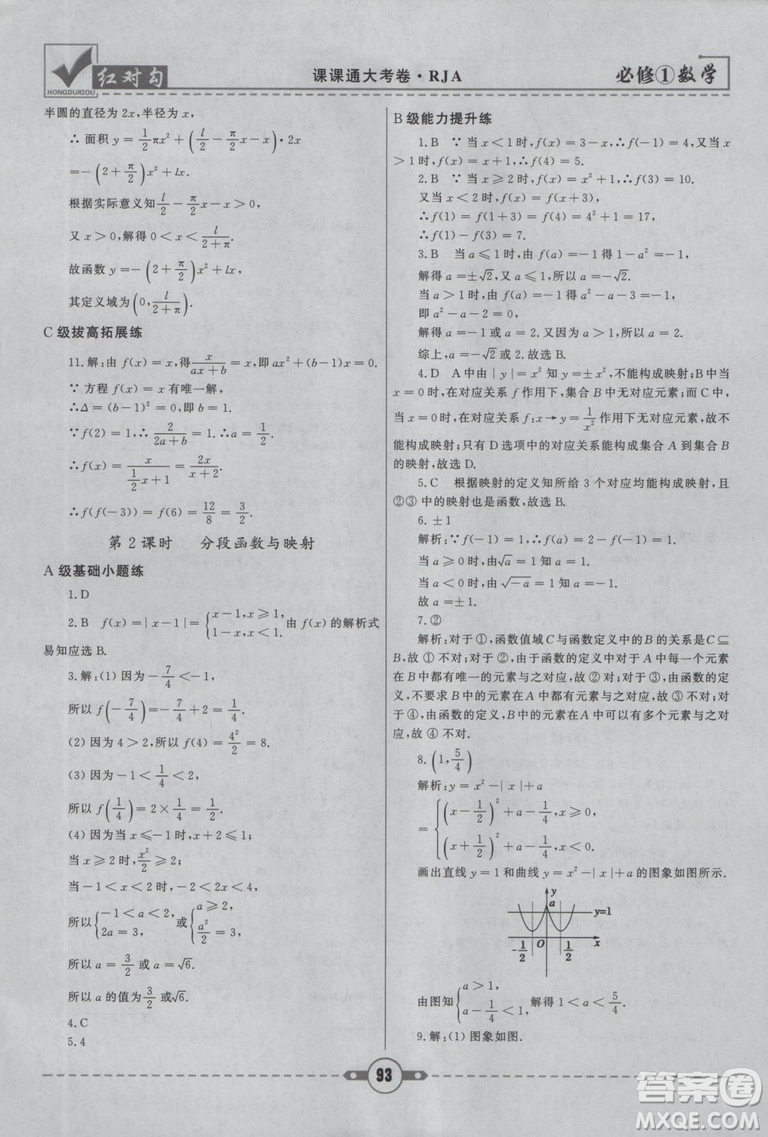 红对勾
HONGDUIGOU
课课通大考卷·RJA
必修①数学
半圆的直径为 2x,半径为 x,
∴ 面积 y=1/2πx²+(l/2-π/2x-x)·2x
=-(2+π/2)x²+lx.
根据实际意义知l/2-π/2x-x>0,
又 x>0,解得 0<x<l/(2+π).
故函数 y=-(2+π/2)x²+lx,
其定义域为(0,l/(2+π)).
C 级拔高拓展练
11.解:由 f(x)=x,得x/(ax+b)=x,即ax²+(b-1)x=0.
∵ 方程 f(x)=x 有唯一解,
∴Δ=(b-1)²=0,即b=1.
∵f(2)=1,∴2/(2a+b)=1.∴a=1/2.
∴f(x)=x/(1/2x+1)=2x/(x+2).
∴f(f(-3))=f(6)=12/8=3/2.
第 2 课时 分段函数与映射
A 级基础小题练
1.D
2.B f(x)=|x-1|={x-1,x≥1, 1-x,x<1. 由 f(x)的解析式
易知应选 B.
3.解:(1) 因为-7/4<-1,
所以 f(-7/4)=-7/4+2=1/4.
(2) 因为 4>2,所以 f(4)=4²/2=8.
(3) 因为-1<1/4<2,
所以 f(1/4)=2×1/4=1/2.
(4) 因为当 x≤-1 时,x+2≤1,
当 x≥2 时,x²/2≥2,
当-1<x<2 时,-2<2x<4.
所以{-1<a<2, 2a=3, 或{a≥2, a²/2=3,
所以 a=3/2 或 a=√6.
所以 a 的值为3/2或√6.
4.C
5.4
B 级能力提升练
1.B ∵ 当 x<1 时,f(x)=3-x,∴f(-1)=4,又当 x
>1 时,f(x)=x+1,∴f(4)=5.
2.B ∵ 当 x≥2 时,f(x)=x²-x-2,∴f(4)=10.
又当 x<2 时,f(x)=f(x+3),
∴f(1)=f(1+3)=f(4)=4²-4-2=10,
∴f(1)-f(3)=7.
3.B 当 a≤1 时,f(a)=1-a²=-1,
解得 a=±√2,又 a≤1,所以 a=-√2.
当 a>1 时,f(a)=a²-a-3=-1,
即 a²-a-2=0,
解得 a=2 或 a=-1,又因为 a>1,所以 a=2.
综上,a=-√2或 2.故选 B.
4.D A 中由 |y|=x 知不是映射,不能构成映射;B 中当 x
<0 时,在对应关系 f 作用下,集合 B 中无对应元素;而 C 中,
当 x=0 时,在对应关系 f:x→y=1/x² 作用下无对应元素,故不
能构成映射;只有 D 选项中的对应关系能构成集合 A 到集合 B
的映射,故选 D.
5.C 根据映射的定义知所给 3 个对应均能构成映射,且
②③ 中的映射也是函数,故选 B.
6.±1
解析:∵f(1)=√1=1,∴f(a)=2-f(1)=1.
当 a≥0 时,由√a=1 知 a=1.
当 a<0 时,由√-a=1 知 a=-1.
故 a=±1.
7.②
解析:对于 ①,函数值域 C 与函数定义中的 B 的关系是 C⊆
B,故 ① 不对;对于 ②,函数的定义中对于 A 中每一个元素
在 B 中都有唯一的元素与之对应,故 ② 对;对于 ③,函数的定
义,不要求 B 中元素都要有元素与之对应,故 ③ 不对;
对于 ④,由函数的定义,B 中元素在 A 中可以有多个元素与之对
应,故 ④ 不对.
8.(1,5/4)
解析:y=x²-|x|+a
={(x-1/2)²+a-1/4,x≥0, (x+1/2)²+a-1/4,x<0.
画出直线 y=1 和曲线 y=x²-|x|+a 的图象如图所示.
y
a
y=1
-1/2 O 1/2 x
由图知{a>1, a-1/4<1, 解得 1<a<5/4.
9.解:(1) 图象如图.
93
答案圈
MXQE.COM